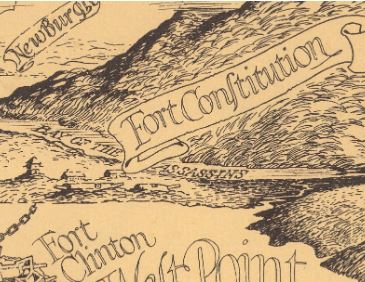 Newburgh
Fort Conſtitution
BAY OF THE
ASSASSINS
Fort
Clinton
West Point